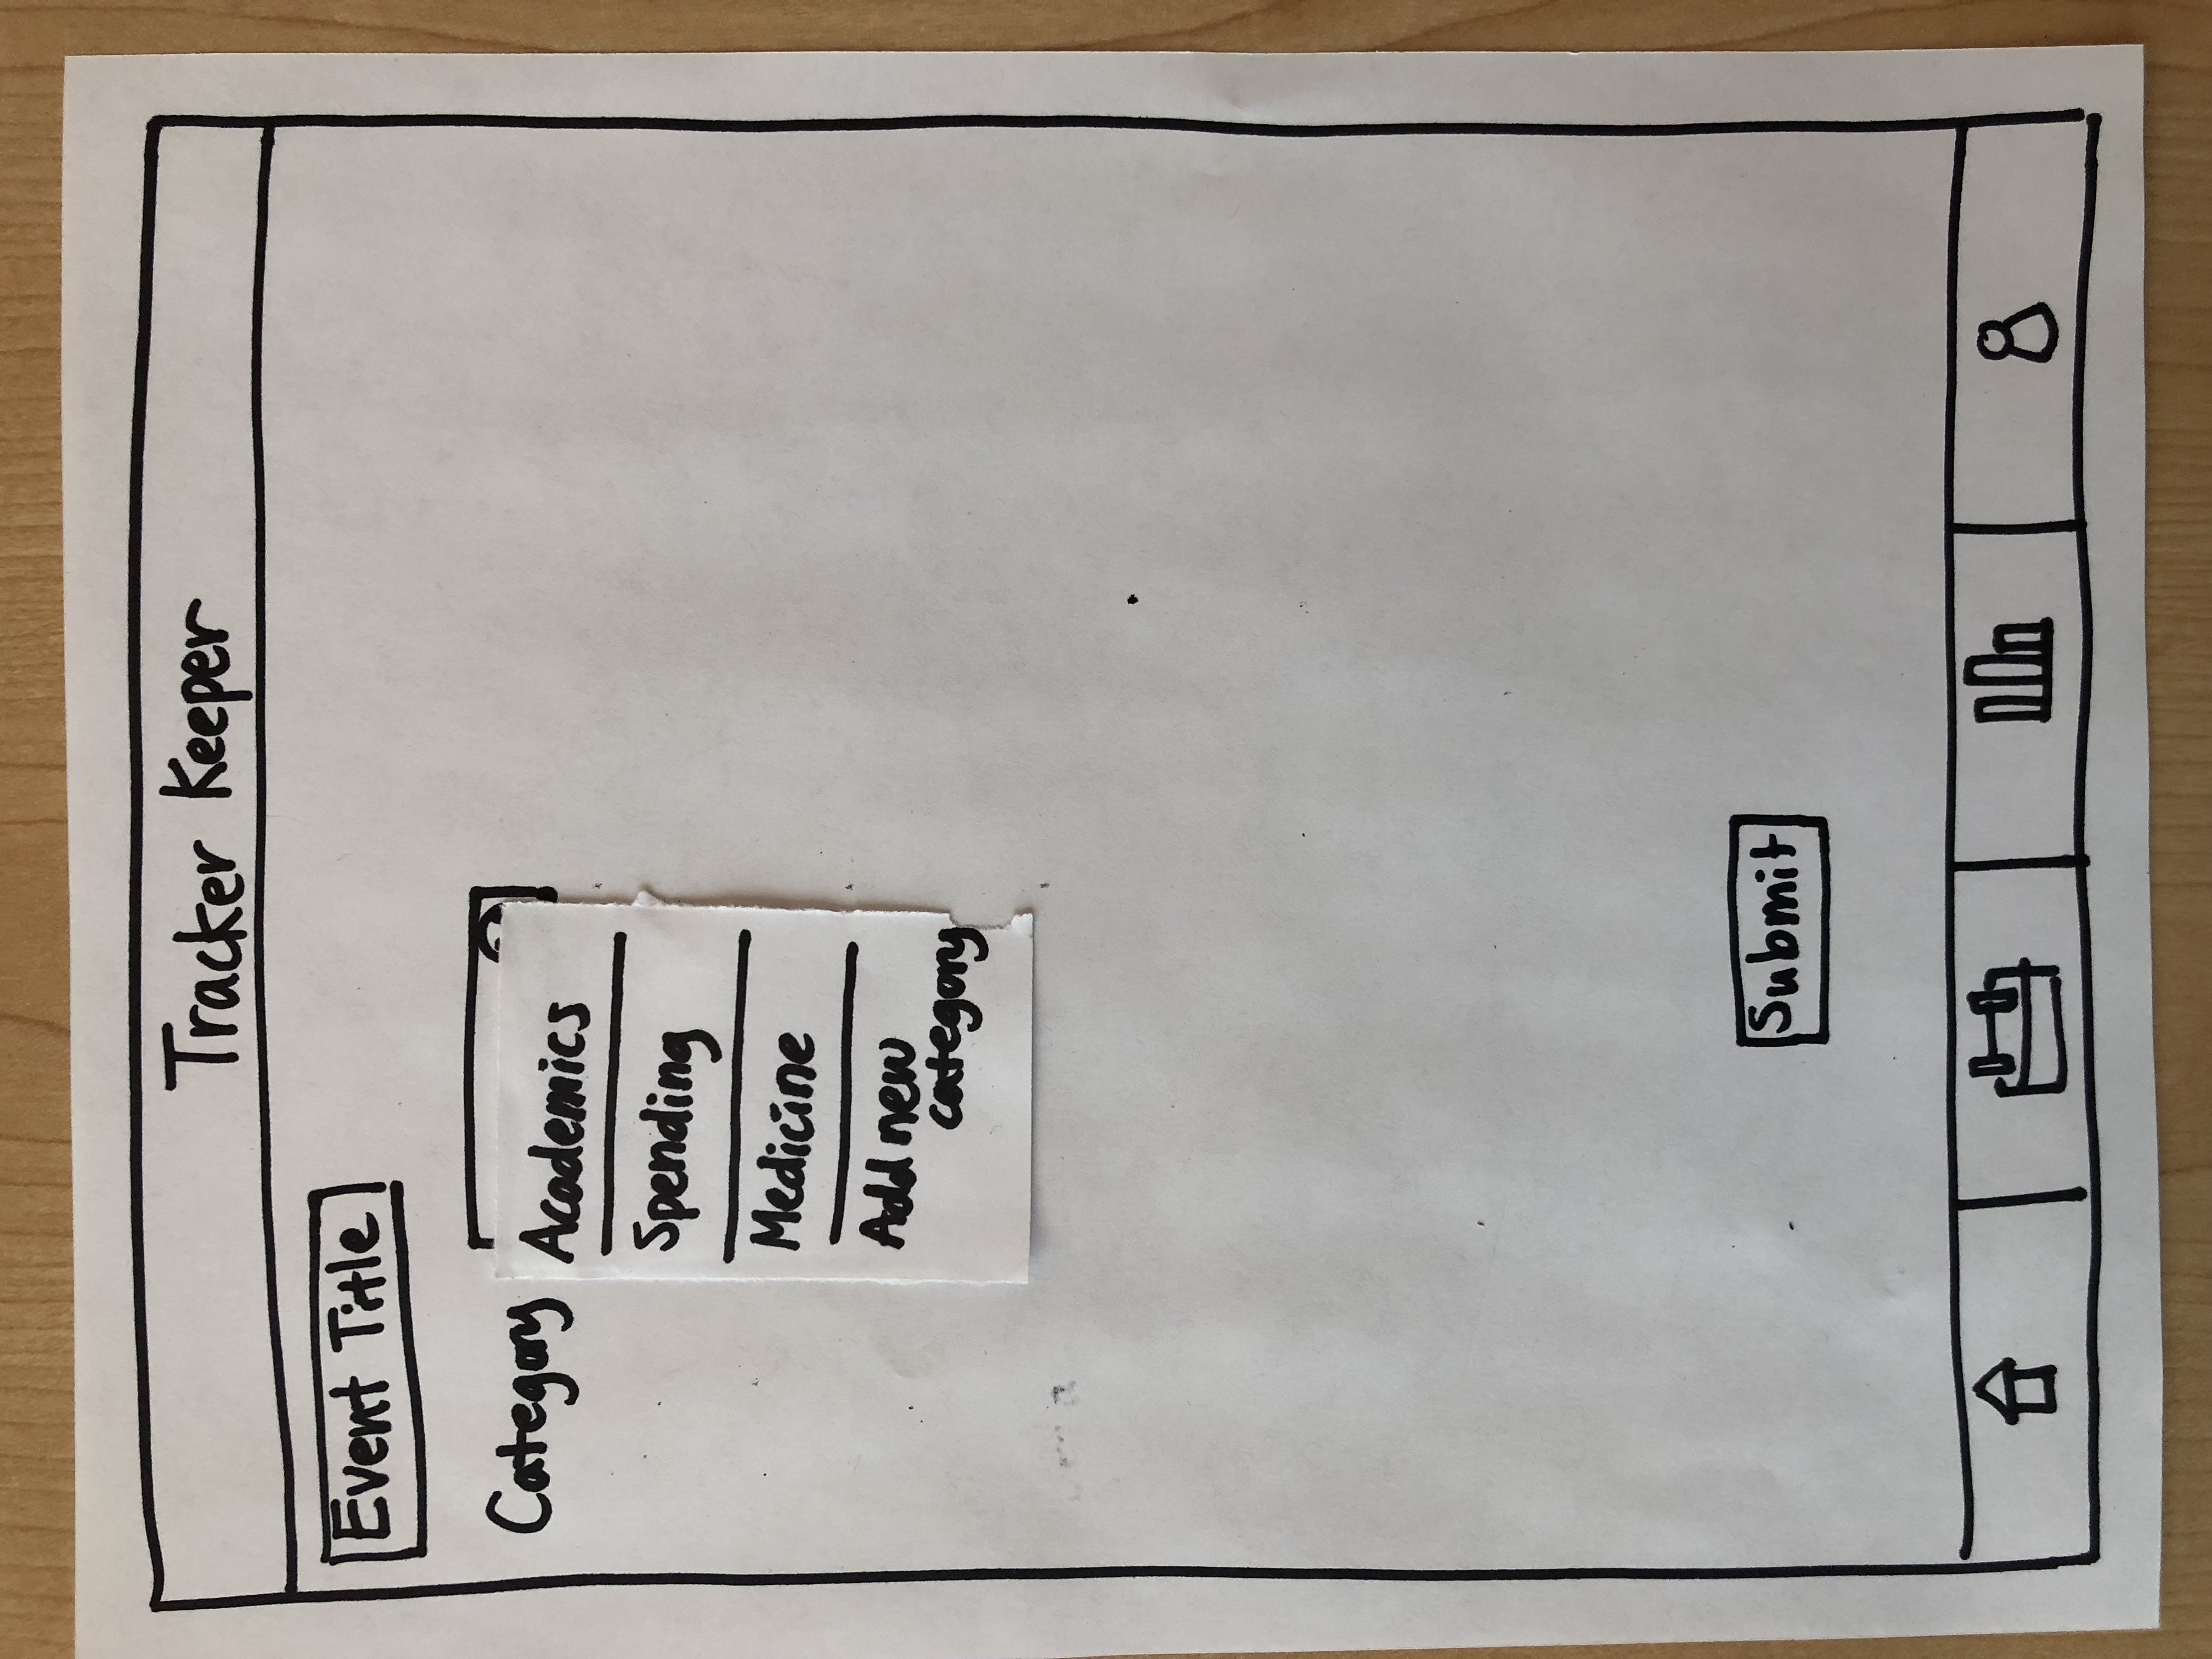 Tracker Keeper
Event Title
Category
Academics
Spending
Medicine
Add new
category
Submit